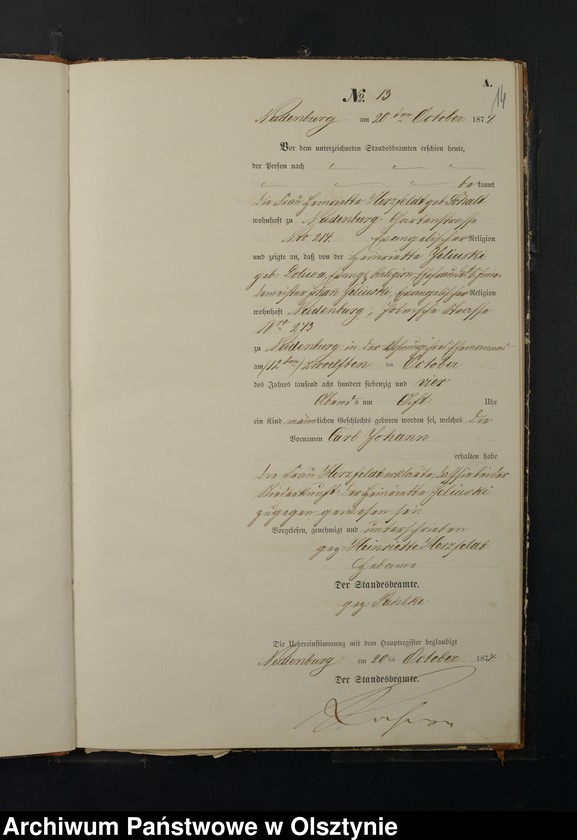 A.
14
No. 13
Neidenburg am 20ten October 1874.
Vor dem unterzeichneten Standesbeamten erschien heute,
der Person nach
be kannt
die Frau Henriette Herzfeldt geb.
wohnhaft zu Neidenburg Gartenstrasse
Nro 214. Evangelischer Religion
und zeigte an, daß von der Henriette
geb. evang. Religion, Ehefrau des
Evangelischer Religion
wohnhaft Neidenburg, Polnische Strasse
Nro 273
zu Neidenburg in der Wohnung ihres Ehemannes
am (12ten) zwoelften October
des Jahres tausend acht hundert siebenzig und vier
Abends um Uhr
ein Kind männlichen Geschlechts geboren worden sei, welches die
Vornamen Carl Johann
erhalten habe
Die Frau Herzfeldt erklärte, daß sie bei der
Niederkunft der Henriette
zugegen gewesen sei
Vorgelesen, genehmigt und unterschrieben
gez. Henriette Herzfeldt
Hebamme
Der Standesbeamte.
gez.
Die Uebereinstimmung mit dem Hauptregister beglaubigt
Neidenburg am 20ten October 1874
Der Standesbeamte.
Archiwum Państwowe w Olsztynie